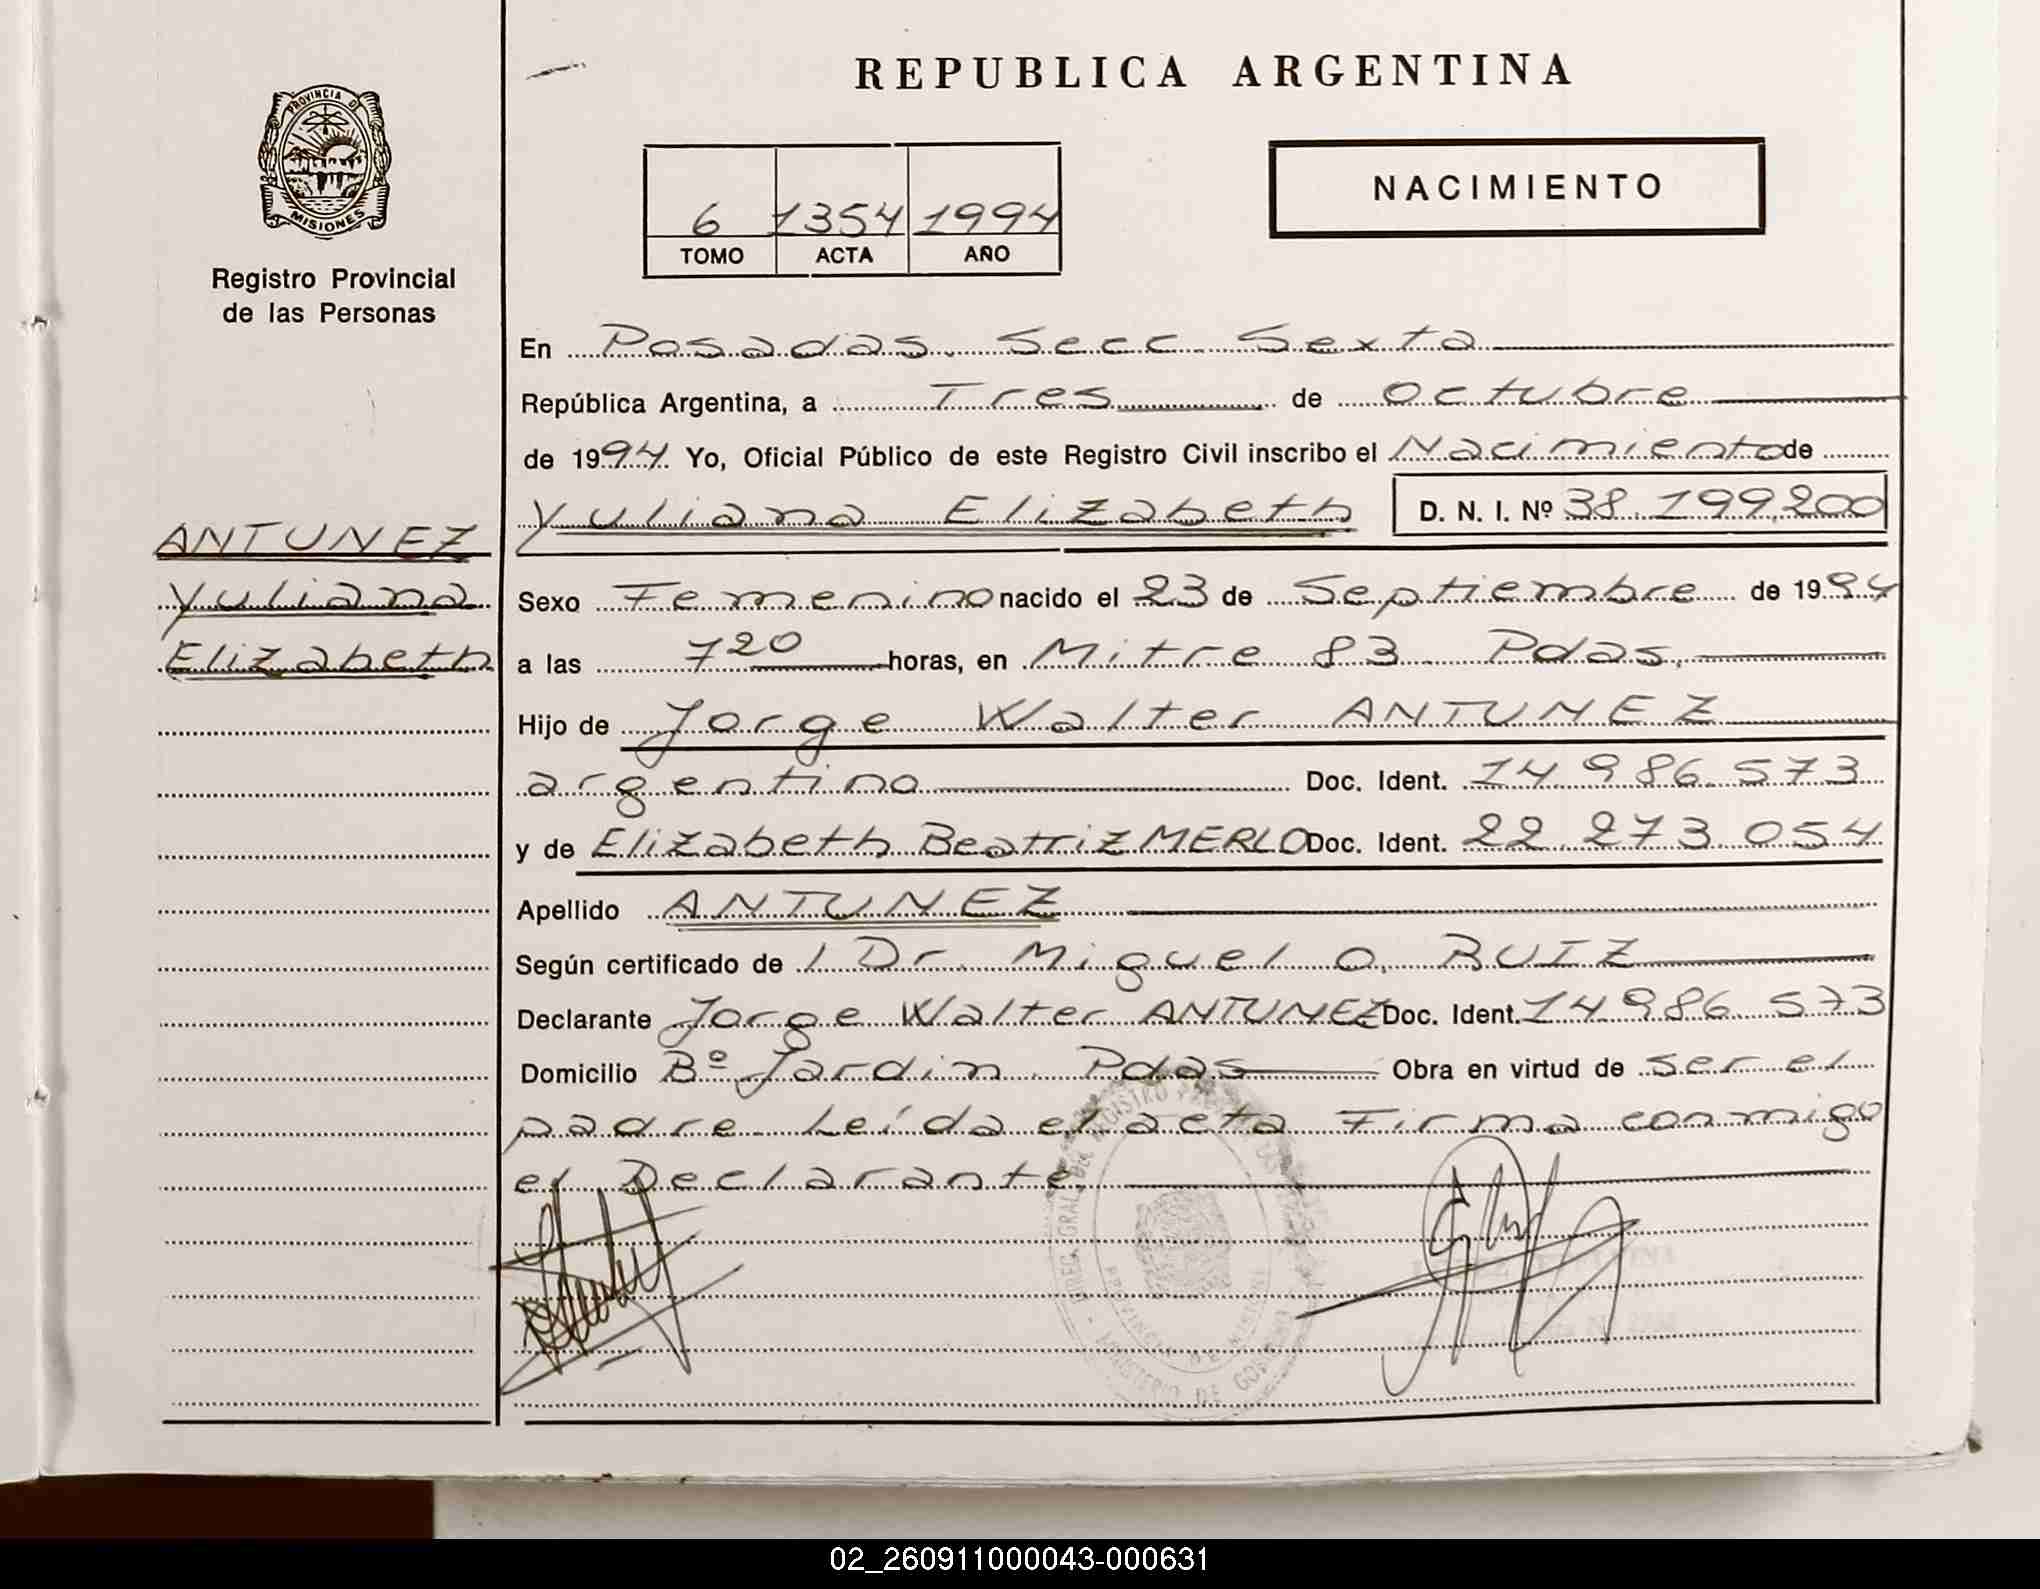 REPUBLICA ARGENTINA
PROVINCIA DE
MISIONES
Registro Provincial
de las Personas
6 1354 1994
TOMO ACTA AÑO
NACIMIENTO
ANTUNEZ
Yuliana
Elizabeth
En Posadas. Secc Sexta
República Argentina, a Tres de Octubre
de 1994. Yo, Oficial Público de este Registro Civil inscribo el Nacimiento de
Yuliana Elizabeth D. N. I. Nº 38.199.200
Sexo Femenino nacido el 23 de Septiembre de 1994
a las 7 20 horas, en Mitre 83 Pdas.
Hijo de Jorge Walter ANTUNEZ
argentino Doc. Ident. 14.986.573
y de Elizabeth Beatriz MERLO Doc. Ident. 22.273.054
Apellido ANTUNEZ
Según certificado de l Dr. Miguel O. RUIZ
Declarante Jorge Walter ANTUNEZ Doc. Ident. 14.986.573
Domicilio Bº Jardin. Pdas Obra en virtud de ser el
padre Leída el acta Firma conmigo
el Declarante
MINISTERIO DE GOBIERNO
PROVINCIA DE MISIONES
02_260911000043-000631